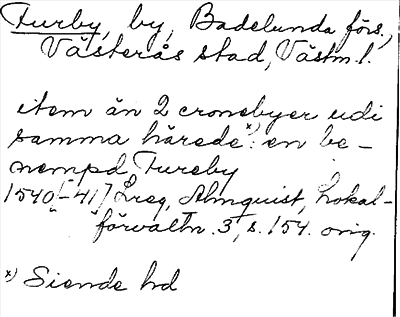 Furby, by, Badelunda förs.,
Västerås stad, Västm. l.
item än 2 cronebyer udi
samma härede x) en be-
nempd Fureby
1540[-41] Lreg, Almquist, Lokal-
förvaltn. 3, s. 154. orig.
x) Siende hd